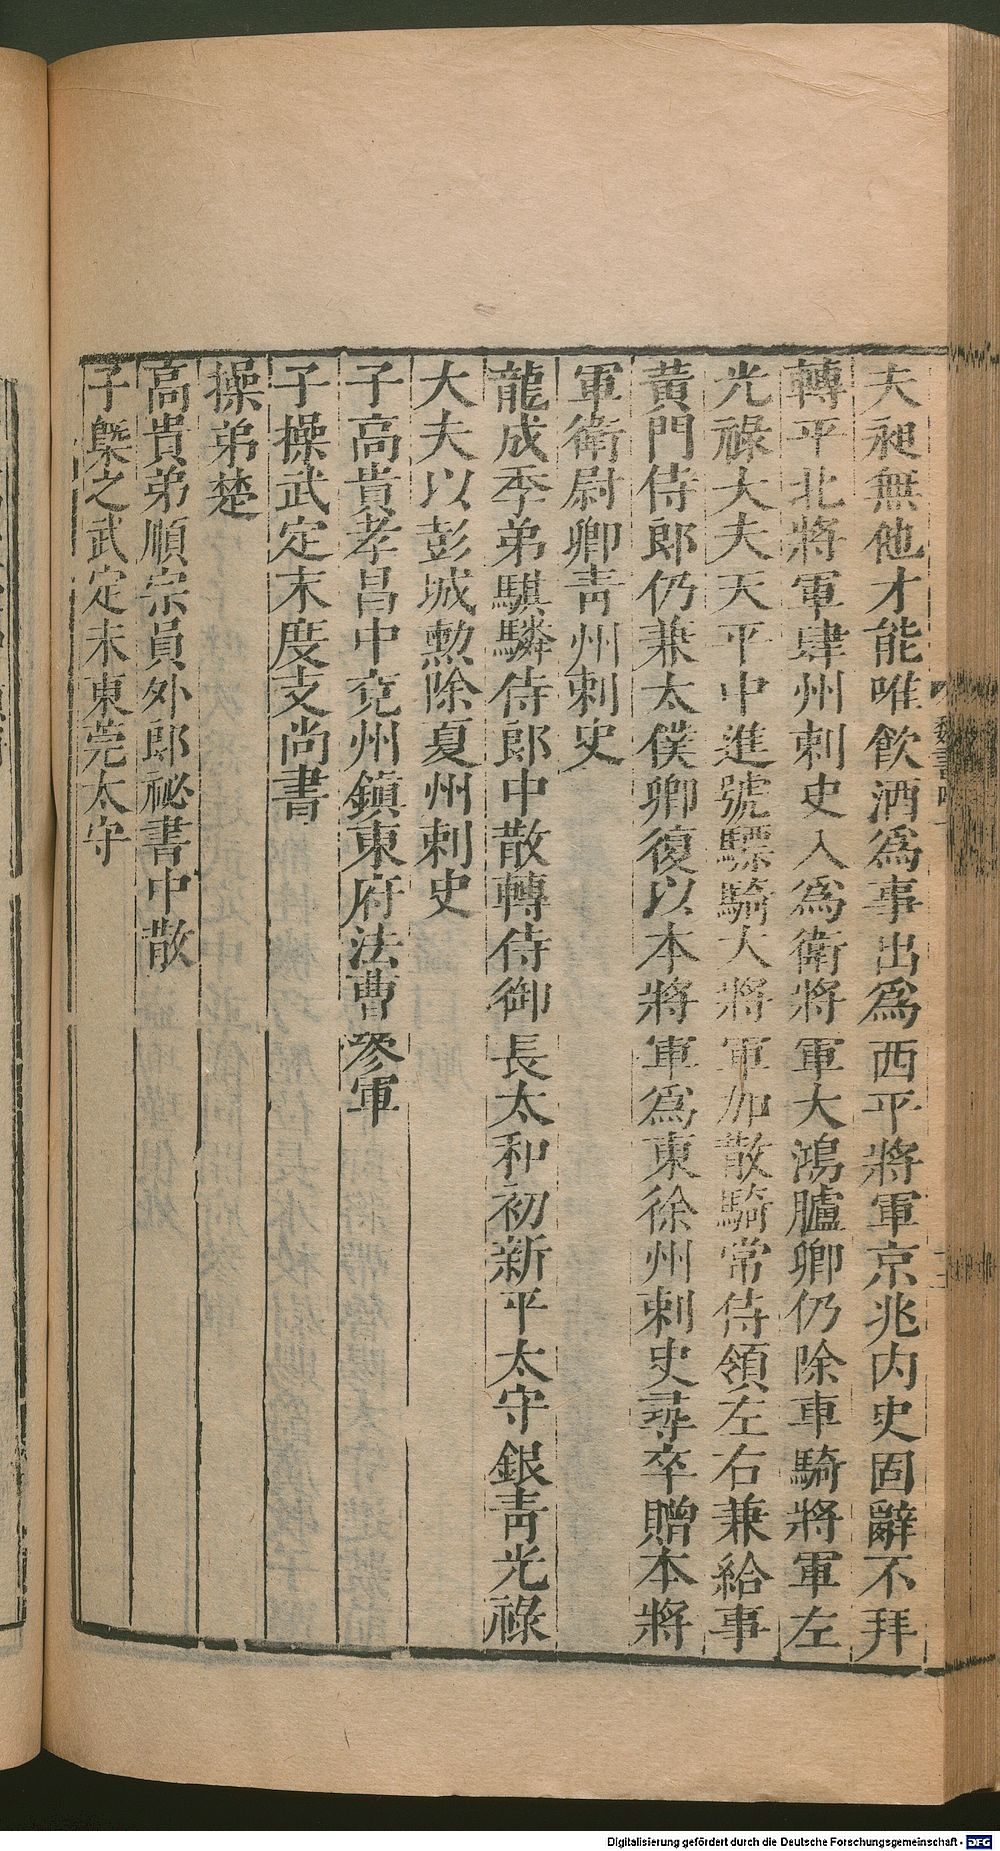 夫昶無他才能唯飲酒爲事出爲西平將軍京兆内史固辭不拜
轉平北將軍肆州刺史入爲衛將軍大鴻臚卿仍除車騎將軍左
光祿大夫天平中進號驃騎大將軍加散騎常侍領左右兼給事
黃門侍郎仍兼太僕卿復以本將軍爲東徐州刺史尋卒贈本將
軍衛尉卿青州刺史
龍成季弟騏驎侍郎中散轉侍御長太和初新平太守銀青光祿
大夫以彭城勲除夏州刺史
子高貴孝昌中兖州鎮東府法曹參軍
子操武定末度支尚書
操弟楚
高貴弟順宗員外郎祕書中散
子槩之武定末東莞太守
魏書
Digitalisierung gefördert durch die Deutsche Forschungsgemeinschaft - DFG